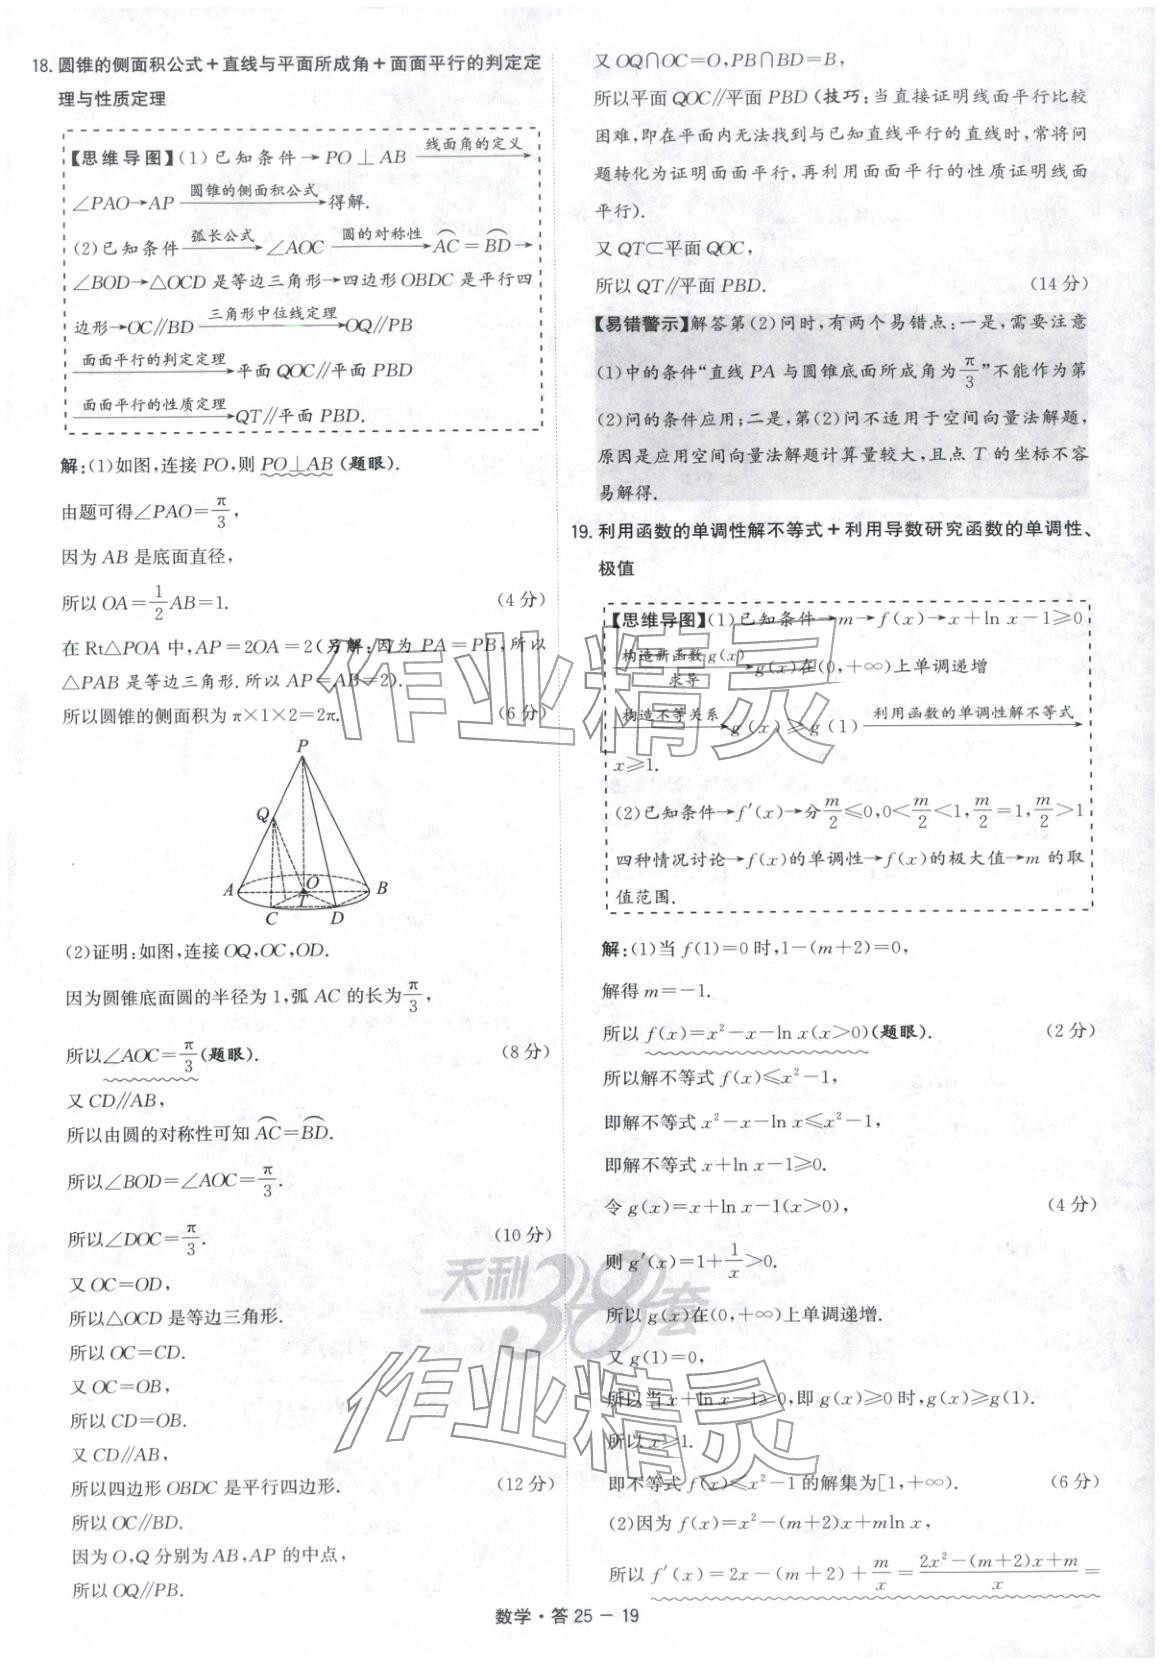 18. 圆锥的侧面积公式＋直线与平面所成角＋面面平行的判定定
理与性质定理
【思维导图】(1)已知条件→PO⊥AB 线面角的定义→
∠PAO→AP 圆锥的侧面积公式→得解.
(2)已知条件 弧长公式→∠AOC 圆的对称性→⌒AC=⌒BD→
∠BOD→△OCD是等边三角形→四边形OBDC是平行四
边形→OC∥BD 三角形中位线定理→OQ∥PB
面面平行的判定定理→平面QOC∥平面PBD
面面平行的性质定理→QT∥平面PBD.
解:(1)如图,连接PO,则PO⊥AB(题眼).
由题可得∠PAO=π/3,
因为AB是底面直径,
所以OA=1/2AB=1. (4分)
在Rt△POA中,AP=2OA=2(另解:因为PA=PB,所以
△PAB是等边三角形.所以AP=AB=2).
所以圆锥的侧面积为π×1×2=2π. (6分)
P
Q
A O B
T
C D
(2)证明:如图,连接OQ,OC,OD.
因为圆锥底面圆的半径为1,弧AC的长为π/3,
所以∠AOC=π/3(题眼). (8分)
又CD∥AB,
所以由圆的对称性可知⌒AC=⌒BD.
所以∠BOD=∠AOC=π/3.
所以∠DOC=π/3. (10分)
又OC=OD,
所以△OCD是等边三角形.
所以OC=CD.
又OC=OB,
所以CD=OB.
又CD∥AB,
所以四边形OBDC是平行四边形. (12分)
所以OC∥BD.
因为O,Q分别为AB,AP的中点,
所以OQ∥PB.
又OQ∩OC=O,PB∩BD=B,
所以平面QOC∥平面PBD(技巧:当直接证明线面平行比较
困难,即在平面内无法找到与已知直线平行的直线时,常将问
题转化为证明面面平行,再利用面面平行的性质证明线面
平行).
又QT⊂平面QOC,
所以QT∥平面PBD. (14分)
【易错警示】解答第(2)问时,有两个易错点:一是,需要注意
(1)中的条件“直线PA与圆锥底面所成角为π/3”不能作为第
(2)问的条件应用;二是,第(2)问不适用于空间向量法解题,
原因是应用空间向量法解题计算量较大,且点T的坐标不容
易解得.
19. 利用函数的单调性解不等式＋利用导数研究函数的单调性、
极值
【思维导图】(1)已知条件→m→f(x)→x+ln x-1≥0
构造新函数g(x) 求导→g(x)在(0,+∞)上单调递增
构造不等关系→g(x)≥g(1) 利用函数的单调性解不等式→
x≥1.
(2)已知条件→f′(x)→分m/2≤0,0<m/2<1,m/2=1,m/2>1
四种情况讨论→f(x)的单调性→f(x)的极大值→m的取
值范围.
解:(1)当f(1)=0时,1-(m+2)=0,
解得m=-1.
所以f(x)=x²-x-ln x(x>0)(题眼). (2分)
所以解不等式f(x)≤x²-1,
即解不等式x²-x-ln x≤x²-1,
即解不等式x+ln x-1≥0.
令g(x)=x+ln x-1(x>0), (4分)
则g′(x)=1+1/x>0.
所以g(x)在(0,+∞)上单调递增.
又g(1)=0,
所以当x+ln x-1≥0,即g(x)≥0时,g(x)≥g(1).
所以x≥1.
即不等式f(x)≤x²-1的解集为[1,+∞). (6分)
(2)因为f(x)=x²-(m+2)x+mln x,
所以f′(x)=2x-(m+2)+m/x=(2x²-(m+2)x+m)/x=
天利38套
作业精灵
作业精灵
数学·答25－19